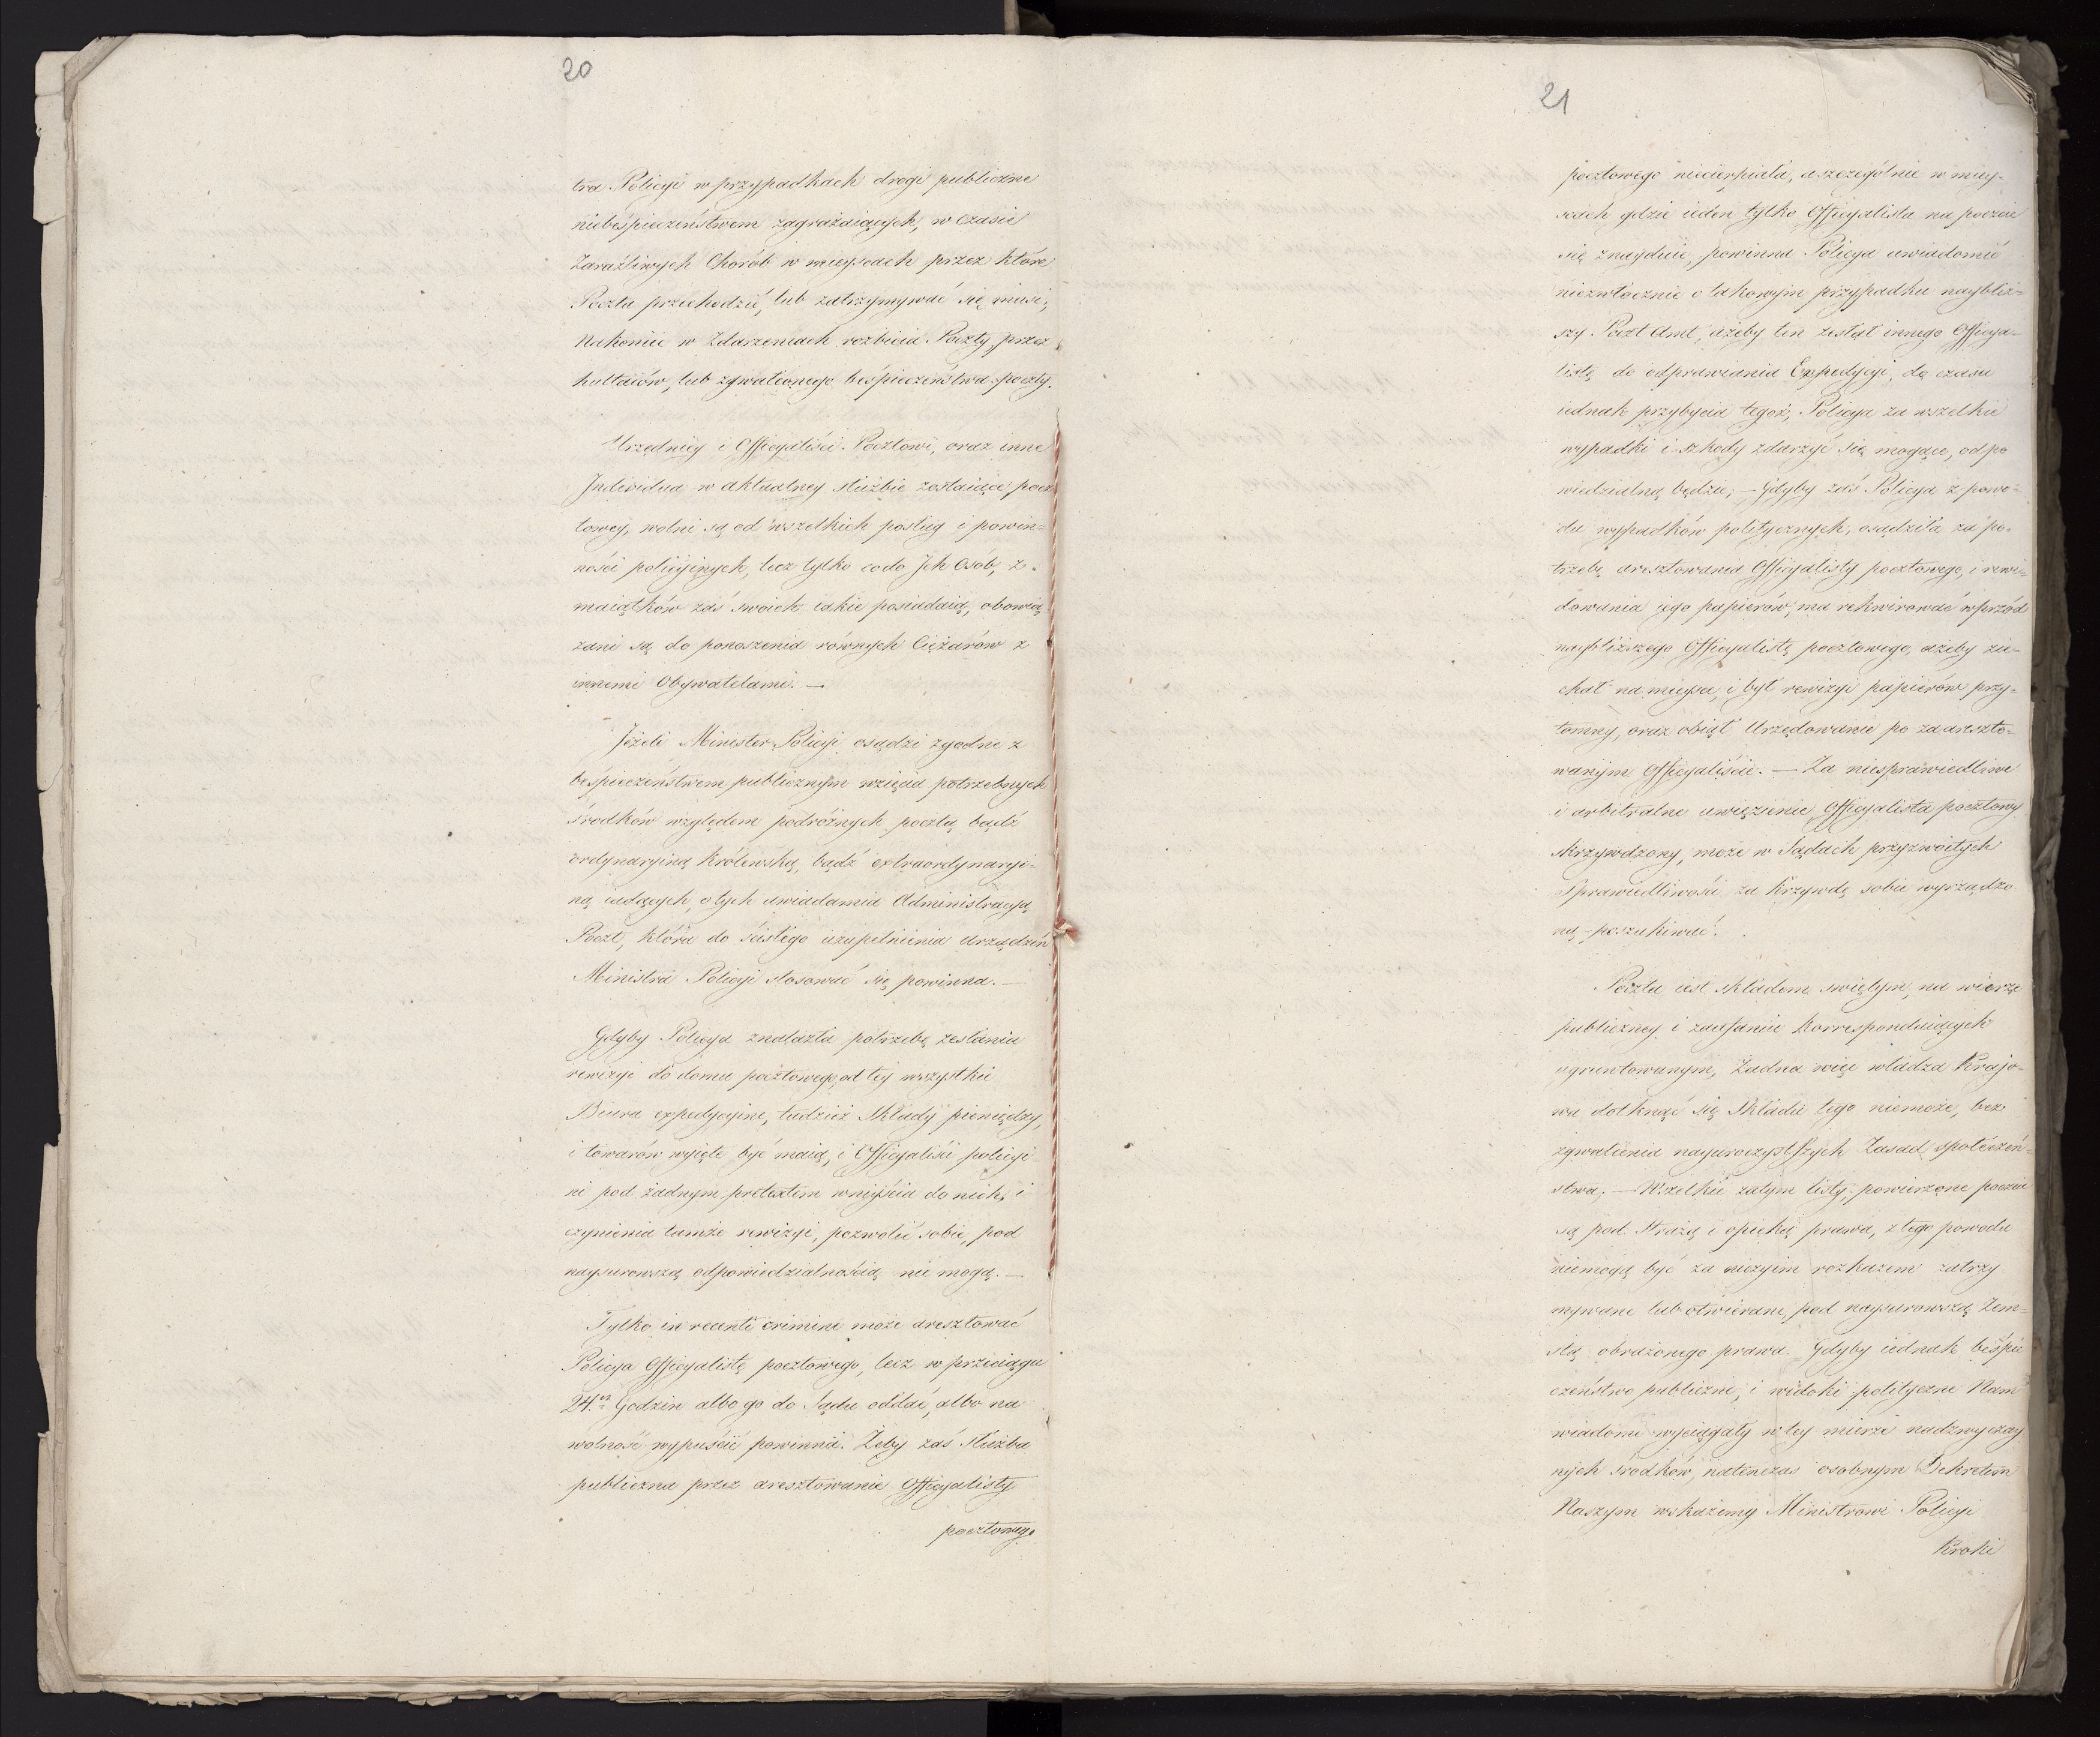 20
tra Policyi w przypadkach drogi publiczne
niebeśpieczeństwem zagrażaiących, w czasie
Zaraźliwych Chorób w mieyscach przez które
Poczta przechodzić, lub zatrzymywać się musi;
Nakoniec w Zdarzeniach rozbicia Poczty, przez
hultaiów, lub zgwałconego beśpieczeństwa poczty.
Urzędnicy i Officyaliści Pocztowi, oraz inne
Individua w aktualney służbie zostaiące pocz
towey, wolni są od wszelkich posług i powin=
ności policyinych, lecz tylko co do Jch Osób, z
maiątków zaś swoich iakie posiadaią, obowią
zani są do ponoszenia równych Ciężarów z
innemi Obywatelami. —
Jeżeli Minister Policyi osądzi zgodne z
beśpieczeństwem publicznym wzięcia potrzebnych
środków względem podróżnych pocztą bądź
ordynaryiną Królewską, bądź extraordynaryi=
ną iadących, o tych uwiadamia Administracyą
Poczt, która do ścisłego uzupełnienia urządzeń
Ministra Policyi stosować się powinna. —
Gdyby Policya znalazła potrzebę zesłania
rewizyi do domu pocztowego, od tey wszystkie
Biura expedycyine, tudzież Składy pieniędzy,
i towarów wyięte być maią, i Officyaliści policyi
ni pod żadnym pretextem wniyścia do nich, i
czynienia tamże rewizyi, pozwolić sobie, pod
naysurowszą odpowiedzialnością nie mogą. —
Tylko in recenti crimine może aresztować
Policya Officyalistę pocztowego, lecz w przeciągu
24. Godzin albo go do Sądu oddać, albo na
wolność wypuścić powinna. Żeby zaś służba
publiczna przez aresztowanie Officyalisty
pocztowego
21
pocztowego niecierpiała, a szczególnie w miey=
scach gdzie ieden tylko Officyalista na poczcie
się znayduie, powinna Policya uwiadomić
niezwłocznie o takowym przypadku naybliż=
szy Poczt Amt, ażeby ten zesłał innego Officya=
listę do odprawiania Expedycyi, do czasu
iednak przybycia tegoż, Policya za wszelkie
wypadki i szkody zdarzyć się mogące, odpo
wiedzialną będzie; — Gdyby zaś Policya z powo=
du wypadków politycznych, osądziła za po=
trzebę aresztowania Officyalisty pocztowego, i rewi=
dowania jego papierów, ma rekwirować wprzód
naybliższego Officyalistę pocztowego, ażeby zie=
chał na mieysce, i był rewizyi papierów przy=
tomny, oraz obiął Urzędowanie po zaareszto=
wanym Officyaliście. — Za niesprawiedliwe
i arbitralne uwięzienie, Officyalista pocztowy
skrzywdzony, może w Sądach przyzwoitych
Sprawiedliwości za krzywdę sobie wyrządzo
ną poszukiwać.
Poczta iest składem swiętym, na wierze
publiczney i zaufaniu korrespondeiących
ugruntowanym, Żadna więc władza Krajo=
wa dotknąć się Składu tego niemoże, bez
zgwałcenia nayuroczystszych Zasad społeczeń=
stwa; — Wszelkie zatym listy, powierzone poczcie
są pod Strażą i opieką prawa, z tego powodu
niemogą być za niczyim rozkazem zatrzy
mywane lub otwierane, pod naysurowszą Zem=
stą obrażonego prawa. Gdyby iednak beśpie
czeństwo publiczne, i widoki polityczne Nam
wiadome wyciągały w tey mierze nadzwyczay
nych środków, natenczas osobnym Dekretem
Naszym wskażemy Ministrowi Policyi
Kroki